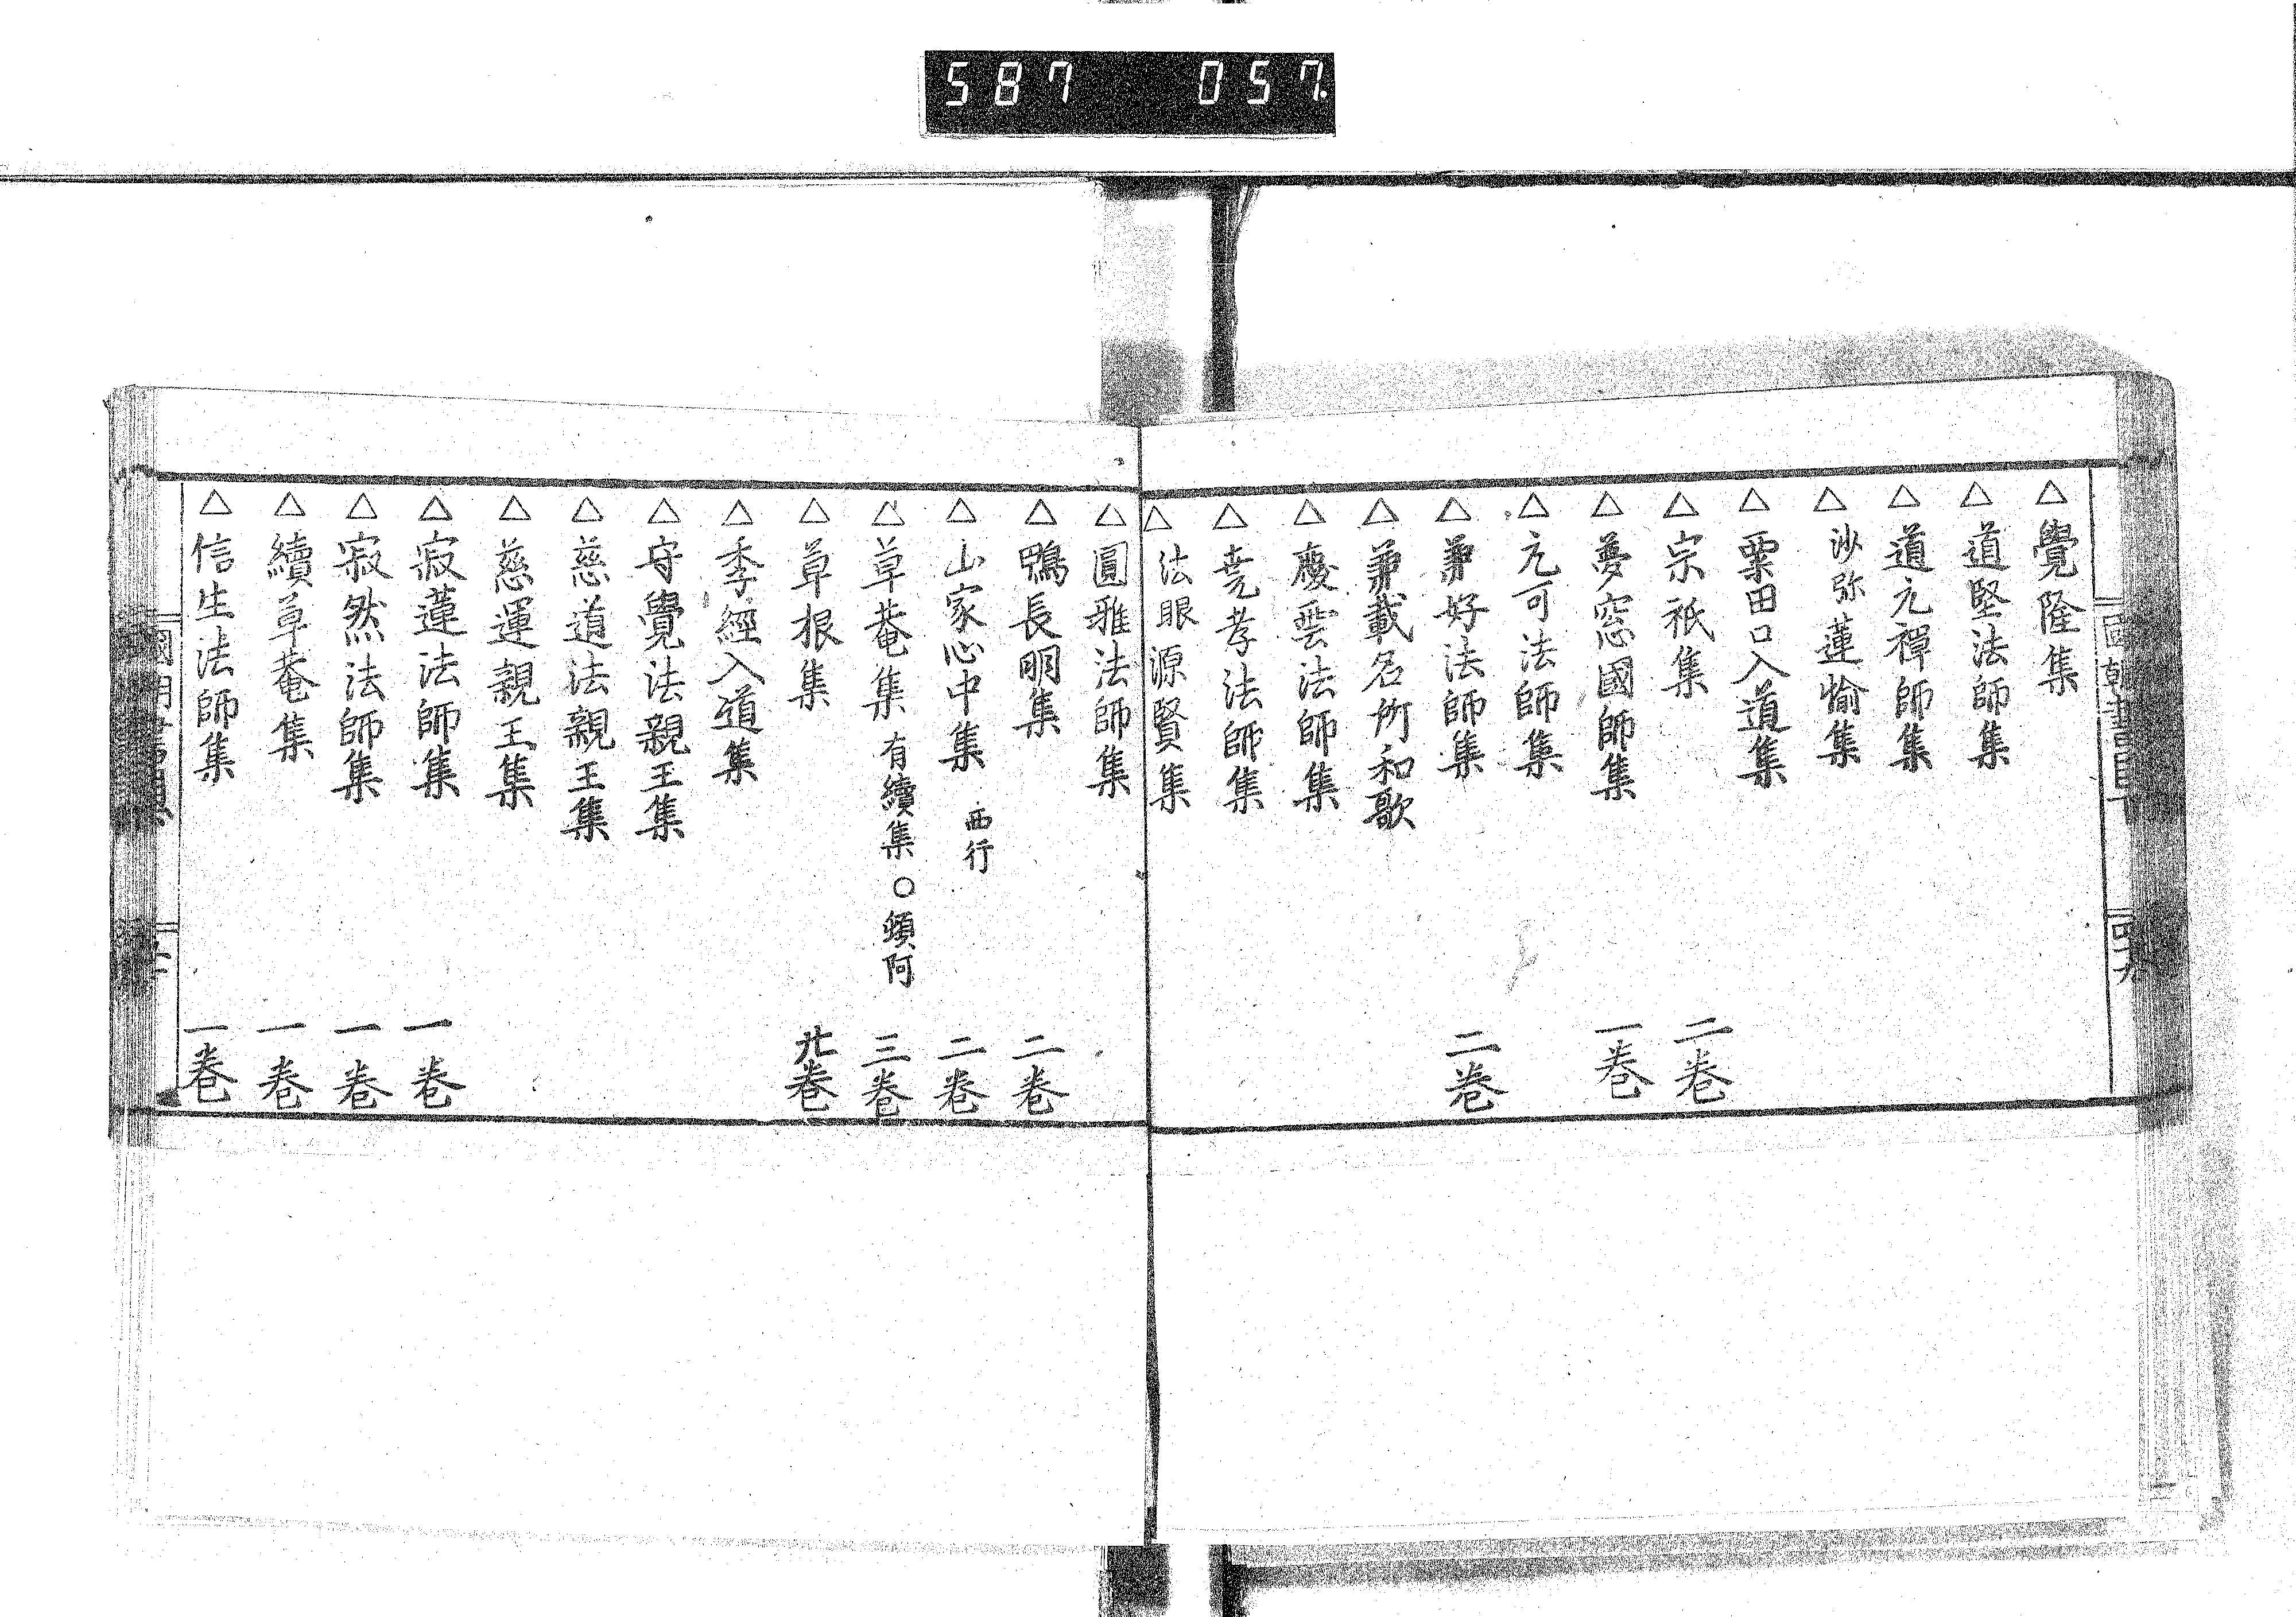 587 057
△覺隆集
△道堅法師集
△道元禪師集
△沙弥蓮愉集
△粟田口入道集
△宗祇集 二卷
△夢窓國師集 一卷
△元可法師集
△兼好法師集 二卷
△兼載名所和歌
△慶雲法師集
△堯孝法師集
△法眼源賢集
△圓雅法師集
△鴨長明集 二卷
△山家心中集 西行 二卷
△草菴集 有續集○頓阿 三卷
△草根集 卷
△季經入道集
△守覺法親王集
△慈道法親王集
△慈運親王集
△寂蓮法師集 一卷
△寂然法師集 一卷
△續草菴集 一卷
△信生法師集 一卷